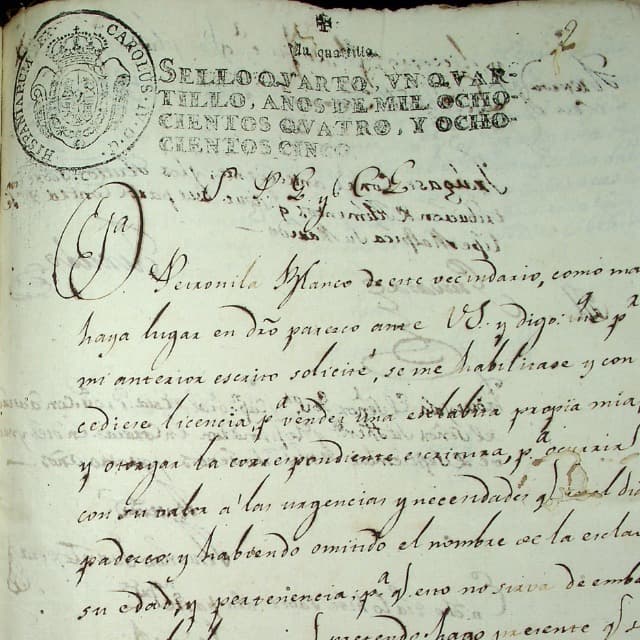 HISPANIARUM REX CAROLUS IV D G
2
Un quartillo.
SELLO QVARTO, VN QVAR-
TILLO, AÑOS DE MIL OCHO-
CIENTOS QVATRO, Y OCHO-
CIENTOS CINCO.
Petronila Blanco de este vecindario, como ma
haya lugar en dro paresco ante VS. y digo: que pr
mi anterior escrito solicité, se me habilitase y con
cediese licencia pa vender una esclabita propia mia,
y otorgar la correspondiente escritura, pa ocurrir
con su valor á las urgencias y necesidades q el di
padesco: y habiendo omitido el nombre de la escla
su edad, y pertenencia; pa q esto no sirva de emba
pretendo hago presente q